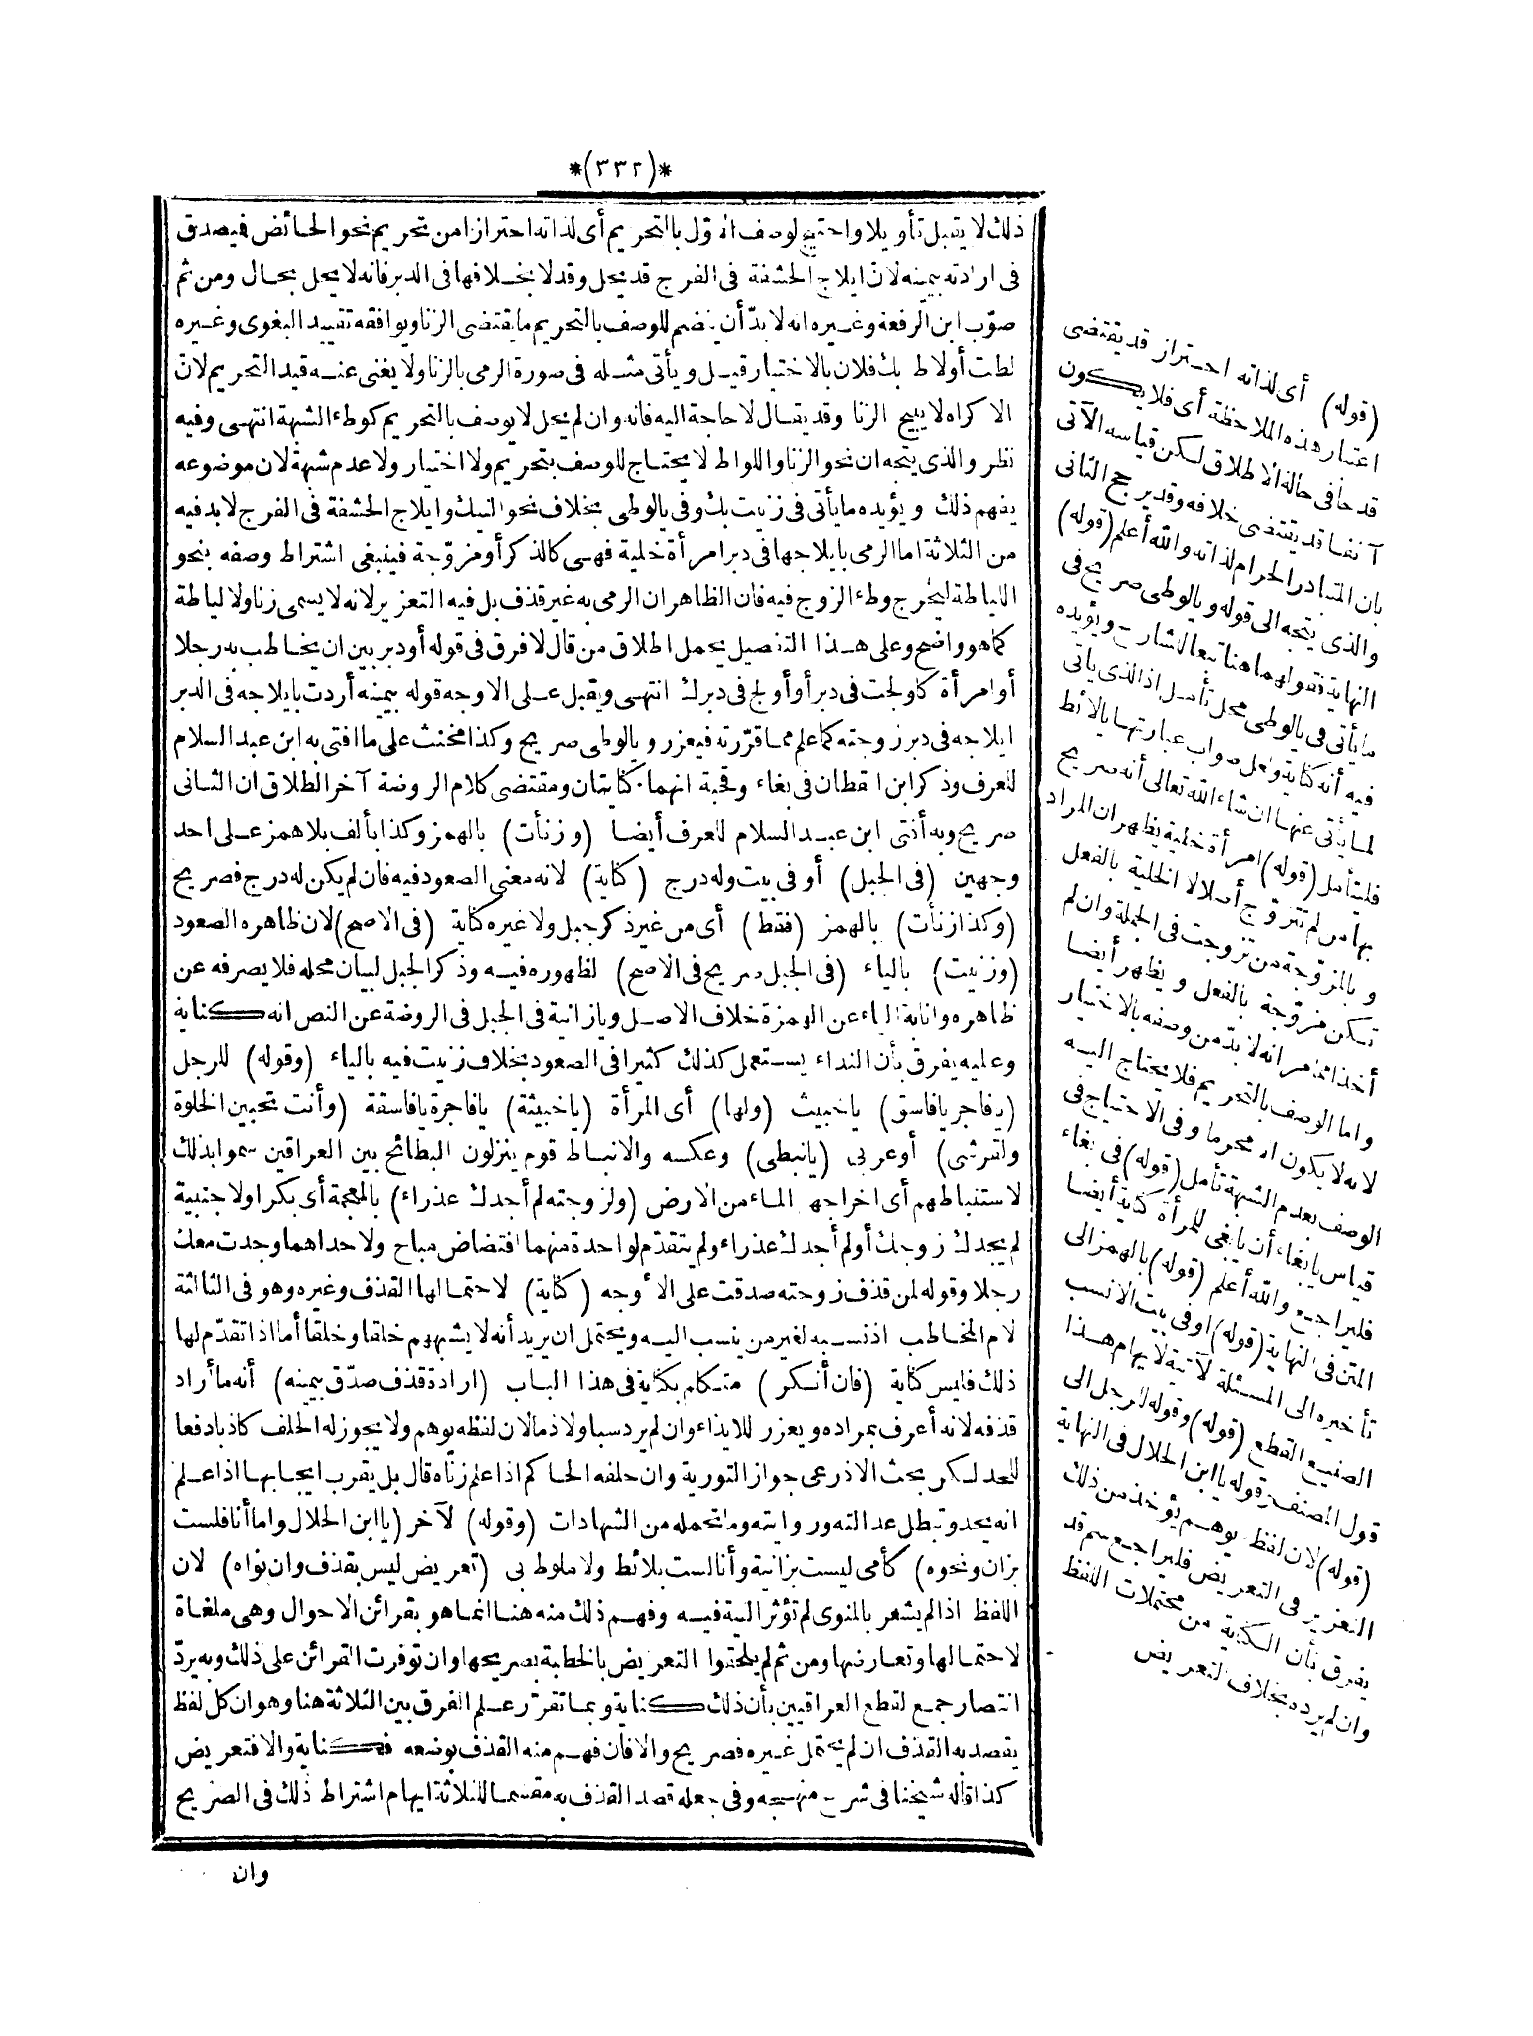 *(٣٣٢)*
ذلك لا يقبل تأويلا واحتيج لوصف الاول بالتحريم أى لذاته احترازا من تحريم نحو الحائض فيصدق
فى ارادته بيمينه لانّ ايلاج الحشفة فى الفرج قد يحل وقد لا بخلافها فى الدبر فانه لا يحل بحال ومن ثم
صوّب ابن الرفعة وغيره انه لا بدّ أن ينضم للوصف بالتحريم ما يقتضى الزنا ويوافقه تقييد البغوى وغيره
لطت أولاط بك فلان بالاختيار قيل ويأتى مثله فى صورة الرمى بالزنا ولا يغنى عنه قيد التحريم لانّ
الاكراه لا يبيح الزنا وقد يقال لا حاجة اليه فانه وان لم يحل لا يوصف بالتحريم كوطء الشبهة انتهى وفيه
نظر والذى يتجه ان نحو الزنا واللواط لا يحتاج للوصف بتحريم ولا اختيار ولا عدم شبهة لان موضوعه
يفهم ذلك ويؤيده ما يأتى فى زنيت بك وفى يا لوطى بخلاف نحو النيك وايلاج الحشفة فى الفرج لا بد فيه
من الثلاثة اما الرمى بايلاجها فى دبر امرأة خلية فهى كالذكر أو مزوّجة فينبغى اشتراط وصفه بنحو
اللياطة ليخرج وطء الزوج فيه فان الظاهر ان الرمى به غير قذف بل فيه التعزير لانه لا يسمى زنا ولا لياطة
كما هو واضح وعلى هذا التفصيل يحمل اطلاق من قال لا فرق فى قوله أو دبر بين ان يخاطب به رجلا
أو امرأة كاولجت فى دبر أو أولج فى دبرك انتهى ويقبل على الاوجه قوله بيمينه أردت بايلاجه فى الدبر
ايلاجه فى دبر زوجته كما علم مما قرّرته فيعزر ويا لوطى صريح وكذا مخنث على ما افتى به ابن عبد السلام
للعرف وذكر ابن القطان فى بغاء وقحبة انهما كنايتان ومقتضى كلام الروضة آخر الطلاق ان الثانى
صريح وبه أفتى ابن عبد السلام للعرف أيضا (وزنأت) بالهمز وكذا بألف بلا همز على احد
وجهين (فى الجبل) أو فى بيت وله درج (كناية) لانه معنى الصعود فيه فان لم يكن له درج فصريح
(وكذا زنأت) بالهمز (فقط) أى من غير ذكر جبل ولا غيره كناية (فى الاصح) لان ظاهره الصعود
(وزنيت) بالياء (فى الجبل صريح فى الاصح) لظهوره فيه وذكر الجبل لبيان محله فلا يصرفه عن
ظاهره وانابة الياء عن الهمزة خلاف الاصل ويا زانية فى الجبل فى الروضة عن النص انه كناية
وعليه يفرق بأن النداء يستعمل كذلك كثيرا فى الصعود بخلاف زنيت فيه بالياء (وقوله) للرجل
(يا فاجر يا فاسق) يا خبيث (ولها) أى المرأة (يا خبيثة) يا فاجرة يا فاسقة (وأنت تحبين الخلوة
ولقرشى) أو عربى (يا نبطى) وعكسه والانباط قوم ينزلون البطائح بين العراقين سموا بذلك
لاستنباطهم أى اخراجهم الماء من الارض (ولزوجته لم أجدك عذراء) بالمعجمة أى بكرا ولاجنبية
لم يجدك زوجك أو لم أجدك عذراء ولم يتقدّم لواحدة منهما افتضاض مباح ولاحداهما وجدت معك
رجلا وقوله لمن قذف زوجته صدقت على الأوجه (كناية) لاحتمالها القذف وغيره وهو فى الثالثة
لام المخاطب اذ نسبه لغير من ينسب اليه ويحتمل ان يريد أنه لا يشبههم خلقا وخلقا أما اذا تقدّم لها
ذلك فليس كناية (فان أنكر) متكلم بكناية فى هذا الباب (ارادة قذف صدّق بيمينه) أنه ما أراد
قذفه لانه أعرف بمراده ويعزر للايذاء وان لم يرد سبا ولا ذما لان لفظه يوهم ولا يجوز له الحلف كاذبا دفعا
للحد لكن بحث الاذرعى جواز التورية وان حلفه الحاكم اذا علم زناه قال بل يقرب ايجابها اذا علم
انه يحد وتبطل عدالته وروايته وما تحمله من الشهادات (وقوله) لآخر (يا ابن الحلال واما أنا فلست
بزان ونحوه) كأمى ليست بزانية وأنا لست بلائط ولا ملوط بى (تعريض ليس بقذف وان نواه) لان
اللفظ اذا لم يشعر بالمنوى لم تؤثر النية فيه وفهم ذلك منه هنا انما هو بقرائن الاحوال وهى ملغاة
لاحتمالها وتعارضها ومن ثم لم يلحقوا التعريض بالخطبة بصريحها وان توفرت القرائن على ذلك وبه يردّ
انتصار جمع لقطع العراقيين بأن ذلك كناية وبما تقرّر علم الفرق بين الثلاثة هنا وهو ان كل لفظ
يقصد به القذف ان لم يحتمل غيره فصريح والا فان فهم منه القذف بوضعه فكناية والا فتعريض
كذا قاله شيخنا فى شرح منهجه وفى جعله قصد القذف به مقسما للثلاثة ايهام اشتراط ذلك فى الصريح
وان
(قوله) أى لذاته احتراز قد يقتضى
اعتبار هذه الملاحظة أى فلا يكون
قدحا فى حالة الاطلاق لكن قياسه الآتى
آنفا قد يقتضى خلافه وقد يرجح الثانى
بان المتبادر الحرام لذاته والله أعلم (قوله)
والذى يتجه الى قوله ويا لوطى صريح فى
النهاية فقولهما هنا تبعا للشارح ويؤيده
ما يأتى فى يا لوطى محل تأمل اذ الذى يأتى
فيه أنه كناية ولعل صواب عبارتها يا لائط
لما يأتى عنها ان شاء الله تعالى أنه صريح
فليتأمل (قوله) امرأة خلية يظهر ان المراد
بها من لم تتزوّج أصلا لا الخلية بالفعل
وبالمزوّجة من تزوجت فى الجملة وان لم
تكن مزوّجة بالفعل ويظهر أيضا
أخذا مما مر انه لا بدّ من وصفه بالاختيار
واما الوصف بالتحريم فلا يحتاج اليه
لانه لا يكون الا محرما وفى الاحتياج فى
الوصف بعدم الشبهة تأمل (قوله) فى بغاء
قياس يا بغاء أن يا بغى للمرأة كناية أيضا
فليراجع والله أعلم (قوله) بالهمز الى
المتن فى النهاية (قوله) او فى بيت الانسب
تأخيره الى المسئلة الآتية لايهام هذا
الصنيع القطع (قوله) وقوله للرجل الى
قول المصنف وقوله يا ابن الحلال فى النهاية
(قوله) لان لفظه يوهم يؤخذ من ذلك
التعزير فى التعريض فليراجع سم قد
يفرق بأن الكناية من محتملات اللفظ
وان لم يرده بخلاف التعريض